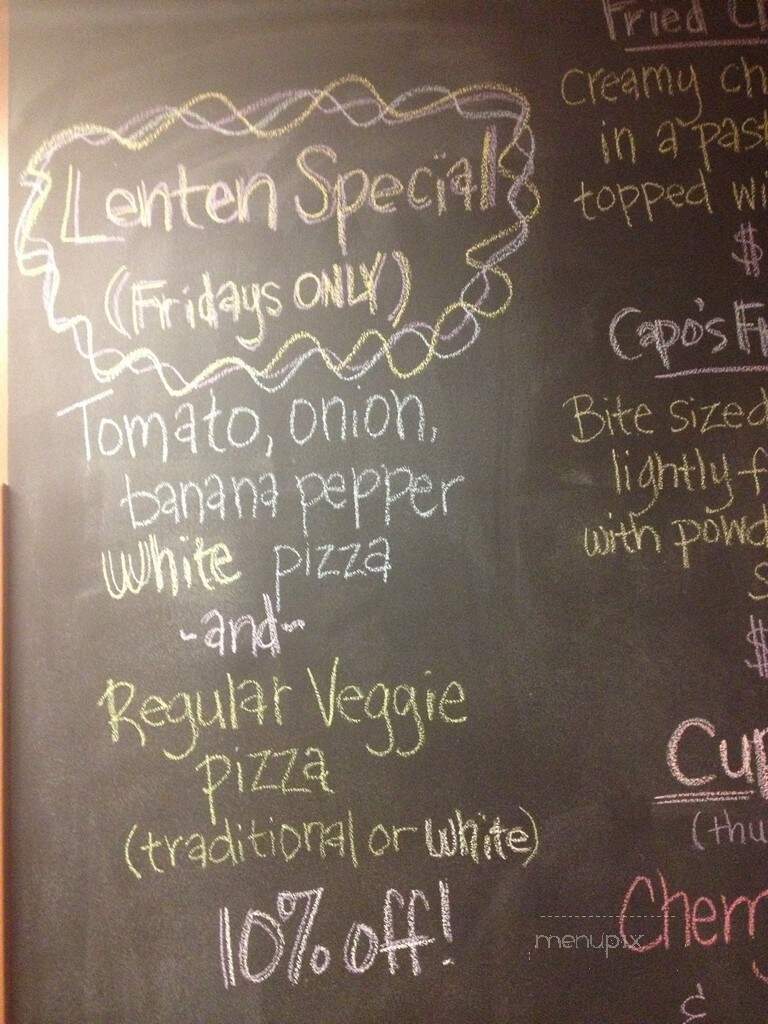 Lenten Special
(Fridays ONLY)
Tomato, onion,
banana pepper
White pizza
-and-
Regular Veggie
pizza
(traditional or white)
10% off!
Fried
Creamy
in a
topped
$
Capo's
Bite sized
lightly
with
$
menupix